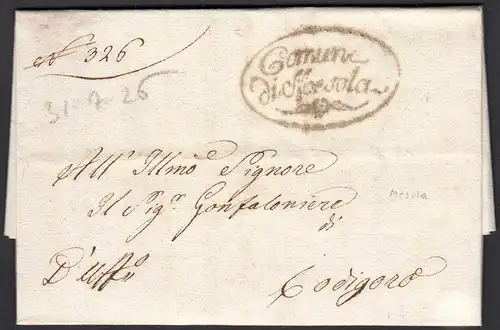 N° 326
Comune
di Mesola
31-7 26
All' Illmo Signore
Il Sigr Gonfaloniere
di
Mesola
D'Uffo
Codigoro